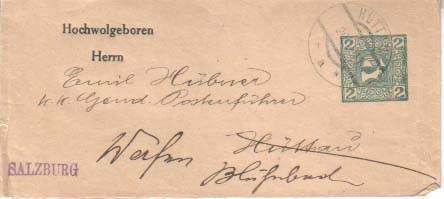 Hochwolgeboren
Herrn
Emil Hübner
k. k. Gend. Postenführer
Werfen Hüttau
Blühnbach
SALZBURG
2 2
HÜTT